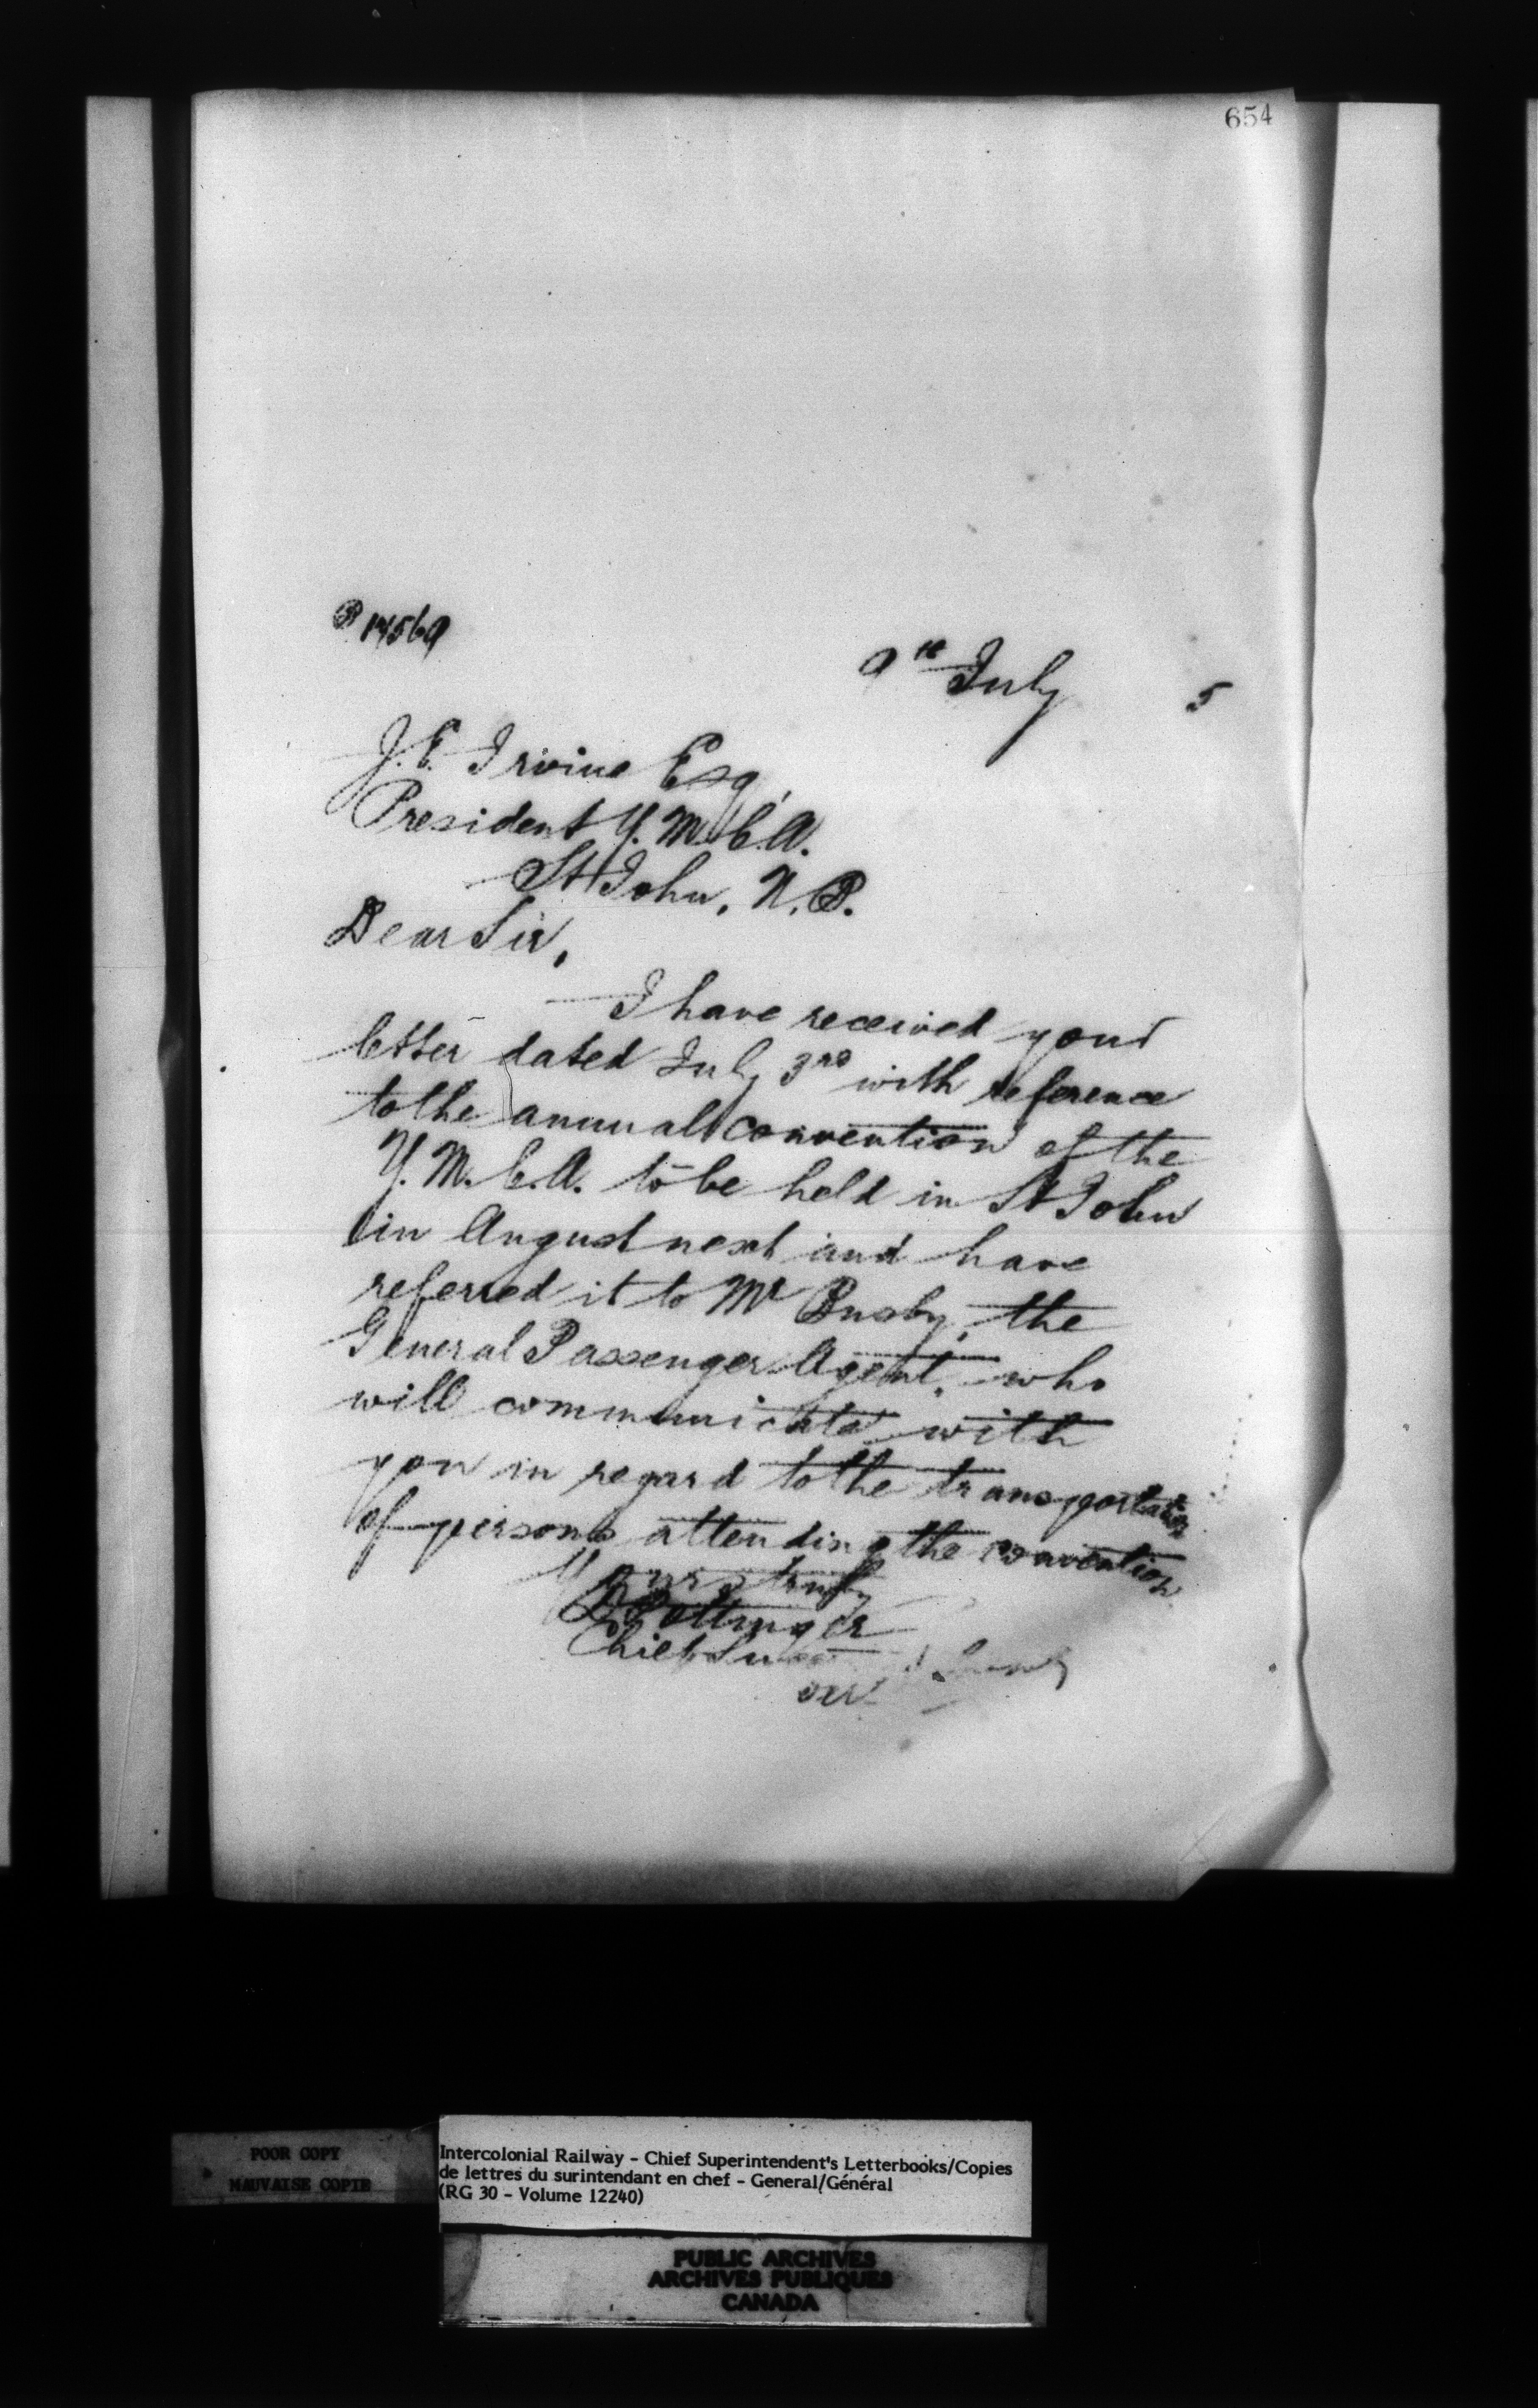 654
9th July 5
J. E. Irvine Esq,
President Y.M.C.A.
St John, N.B.
Dear Sir,
I have received your
letter dated July 3rd with reference
to the annual convention of the
Y.M.C.A. to be held in St John
in August next and have
referred it to Mr Busby, the
General Passenger Agent, who
will communicate with
you in regard to the transportation
of persons attending the convention
Yours truly
D Pottinger
Chief Supt
POOR COPY
MAUVAISE COPIE
Intercolonial Railway - Chief Superintendent's Letterbooks/Copies
de lettres du surintendant en chef - General/Général
(RG 30 - Volume 12240)
PUBLIC ARCHIVES
ARCHIVES PUBLIQUES
CANADA